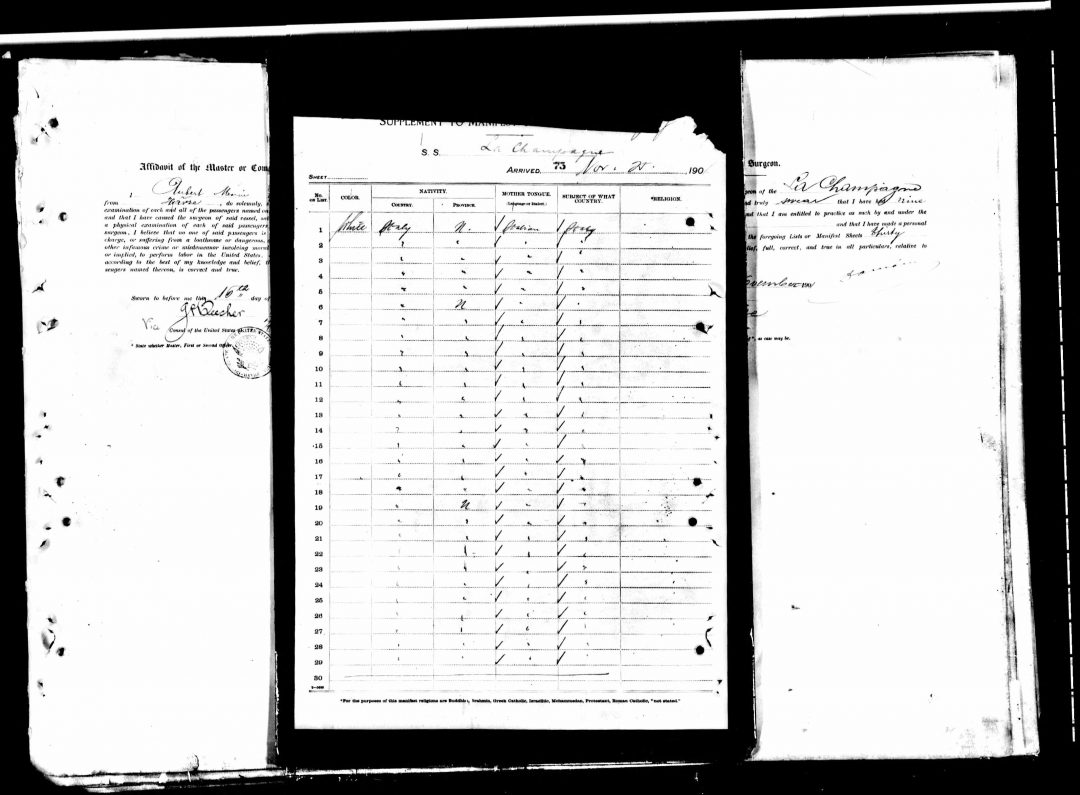 Affidavit of the Master or Com
I, Robert Marie
from Havre, do solemnly,
examination of each and all of the passengers named on
and that I have caused the surgeon of said vessel,
a physical examination of each of said passengers
surgeon, I believe that no one of said passengers is
charge, or suffering from a loathsome or dangerous,
other infamous crime or misdemeanor involving moral
or implied, to perform labor in the United States,
according to the best of my knowledge and belief,
sengers named therein, is correct and true.
Sworn to before me this 15th day of
Consul of the United States
* State whether Master, First or Second Officer
SUPPLEMENT TO MANIFEST
S. S. La Champagne
ARRIVED 73 Nov. 25 190
SHEET
No. on List. COLOR. NATIVITY. COUNTRY. PROVINCE. MOTHER TONGUE. (Language or Dialect.) SUBJECT OF WHAT COUNTRY. *RELIGION.
1 White Italy N. ✓ Italian ✓ Italy
2 " " ✓ " ✓ "
3 " " ✓ " ✓ "
4 " " ✓ " ✓ "
5 " " ✓ " ✓ "
6 " N ✓ " ✓ "
7 " " ✓ " ✓ "
8 " " ✓ " ✓ "
9 " " ✓ " ✓ "
10 " " ✓ " ✓ "
11 " " ✓ " ✓ "
12 " " ✓ " ✓ "
13 " " ✓ " ✓ "
14 " " ✓ " ✓ "
15 " " ✓ " ✓ "
16 " " ✓ " ✓ "
17 " " ✓ " ✓ "
18 " " ✓ " ✓ "
19 " N ✓ " ✓ "
20 " " ✓ " ✓ "
21 " " ✓ " ✓ "
22 " " ✓ " ✓ "
23 " " ✓ " ✓ "
24 " " ✓ " ✓ "
25 " " ✓ " ✓ "
26 " " ✓ " ✓ "
27 " " ✓ " ✓ "
28 " " ✓ " ✓ "
29 " " ✓ " ✓ "
30
*For the purposes of this manifest religions are Buddhist, Brahmin, Greek Catholic, Israelite, Mohammedan, Protestant, Roman Catholic, "not stated."
Surgeon.
geon of the La Champagne
nd truly swear that I have nine
and that I am entitled to practice as such by and under the
and that I have made a personal
the foregoing Lists or Manifest Sheets thirty
lief, full, correct, and true in all particulars, relative to
vember
", as case may be.